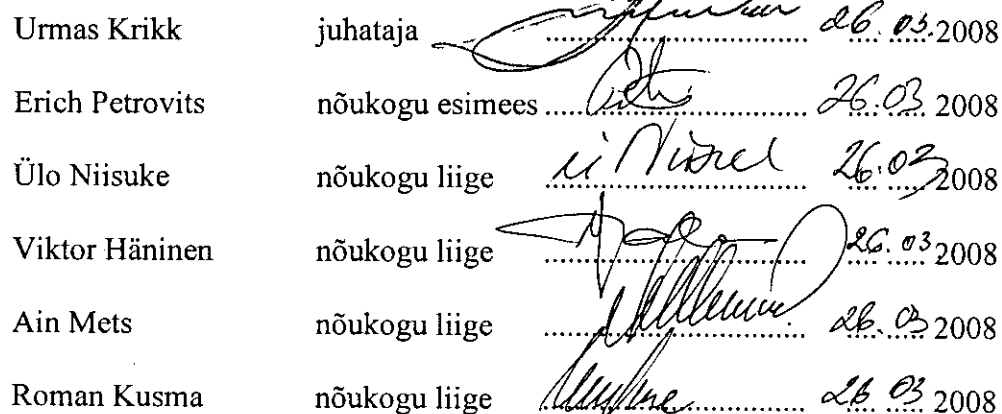 Urmas Krikk juhataja ........ 26. 03. 2008
Erich Petrovits nõukogu esimees ........ 26.03 2008
Ülo Niisuke nõukogu liige ........ 26.03 2008
Viktor Häninen nõukogu liige ........ 26.03 2008
Ain Mets nõukogu liige ........ 26.03 2008
Roman Kusma nõukogu liige ........ 26 03 2008